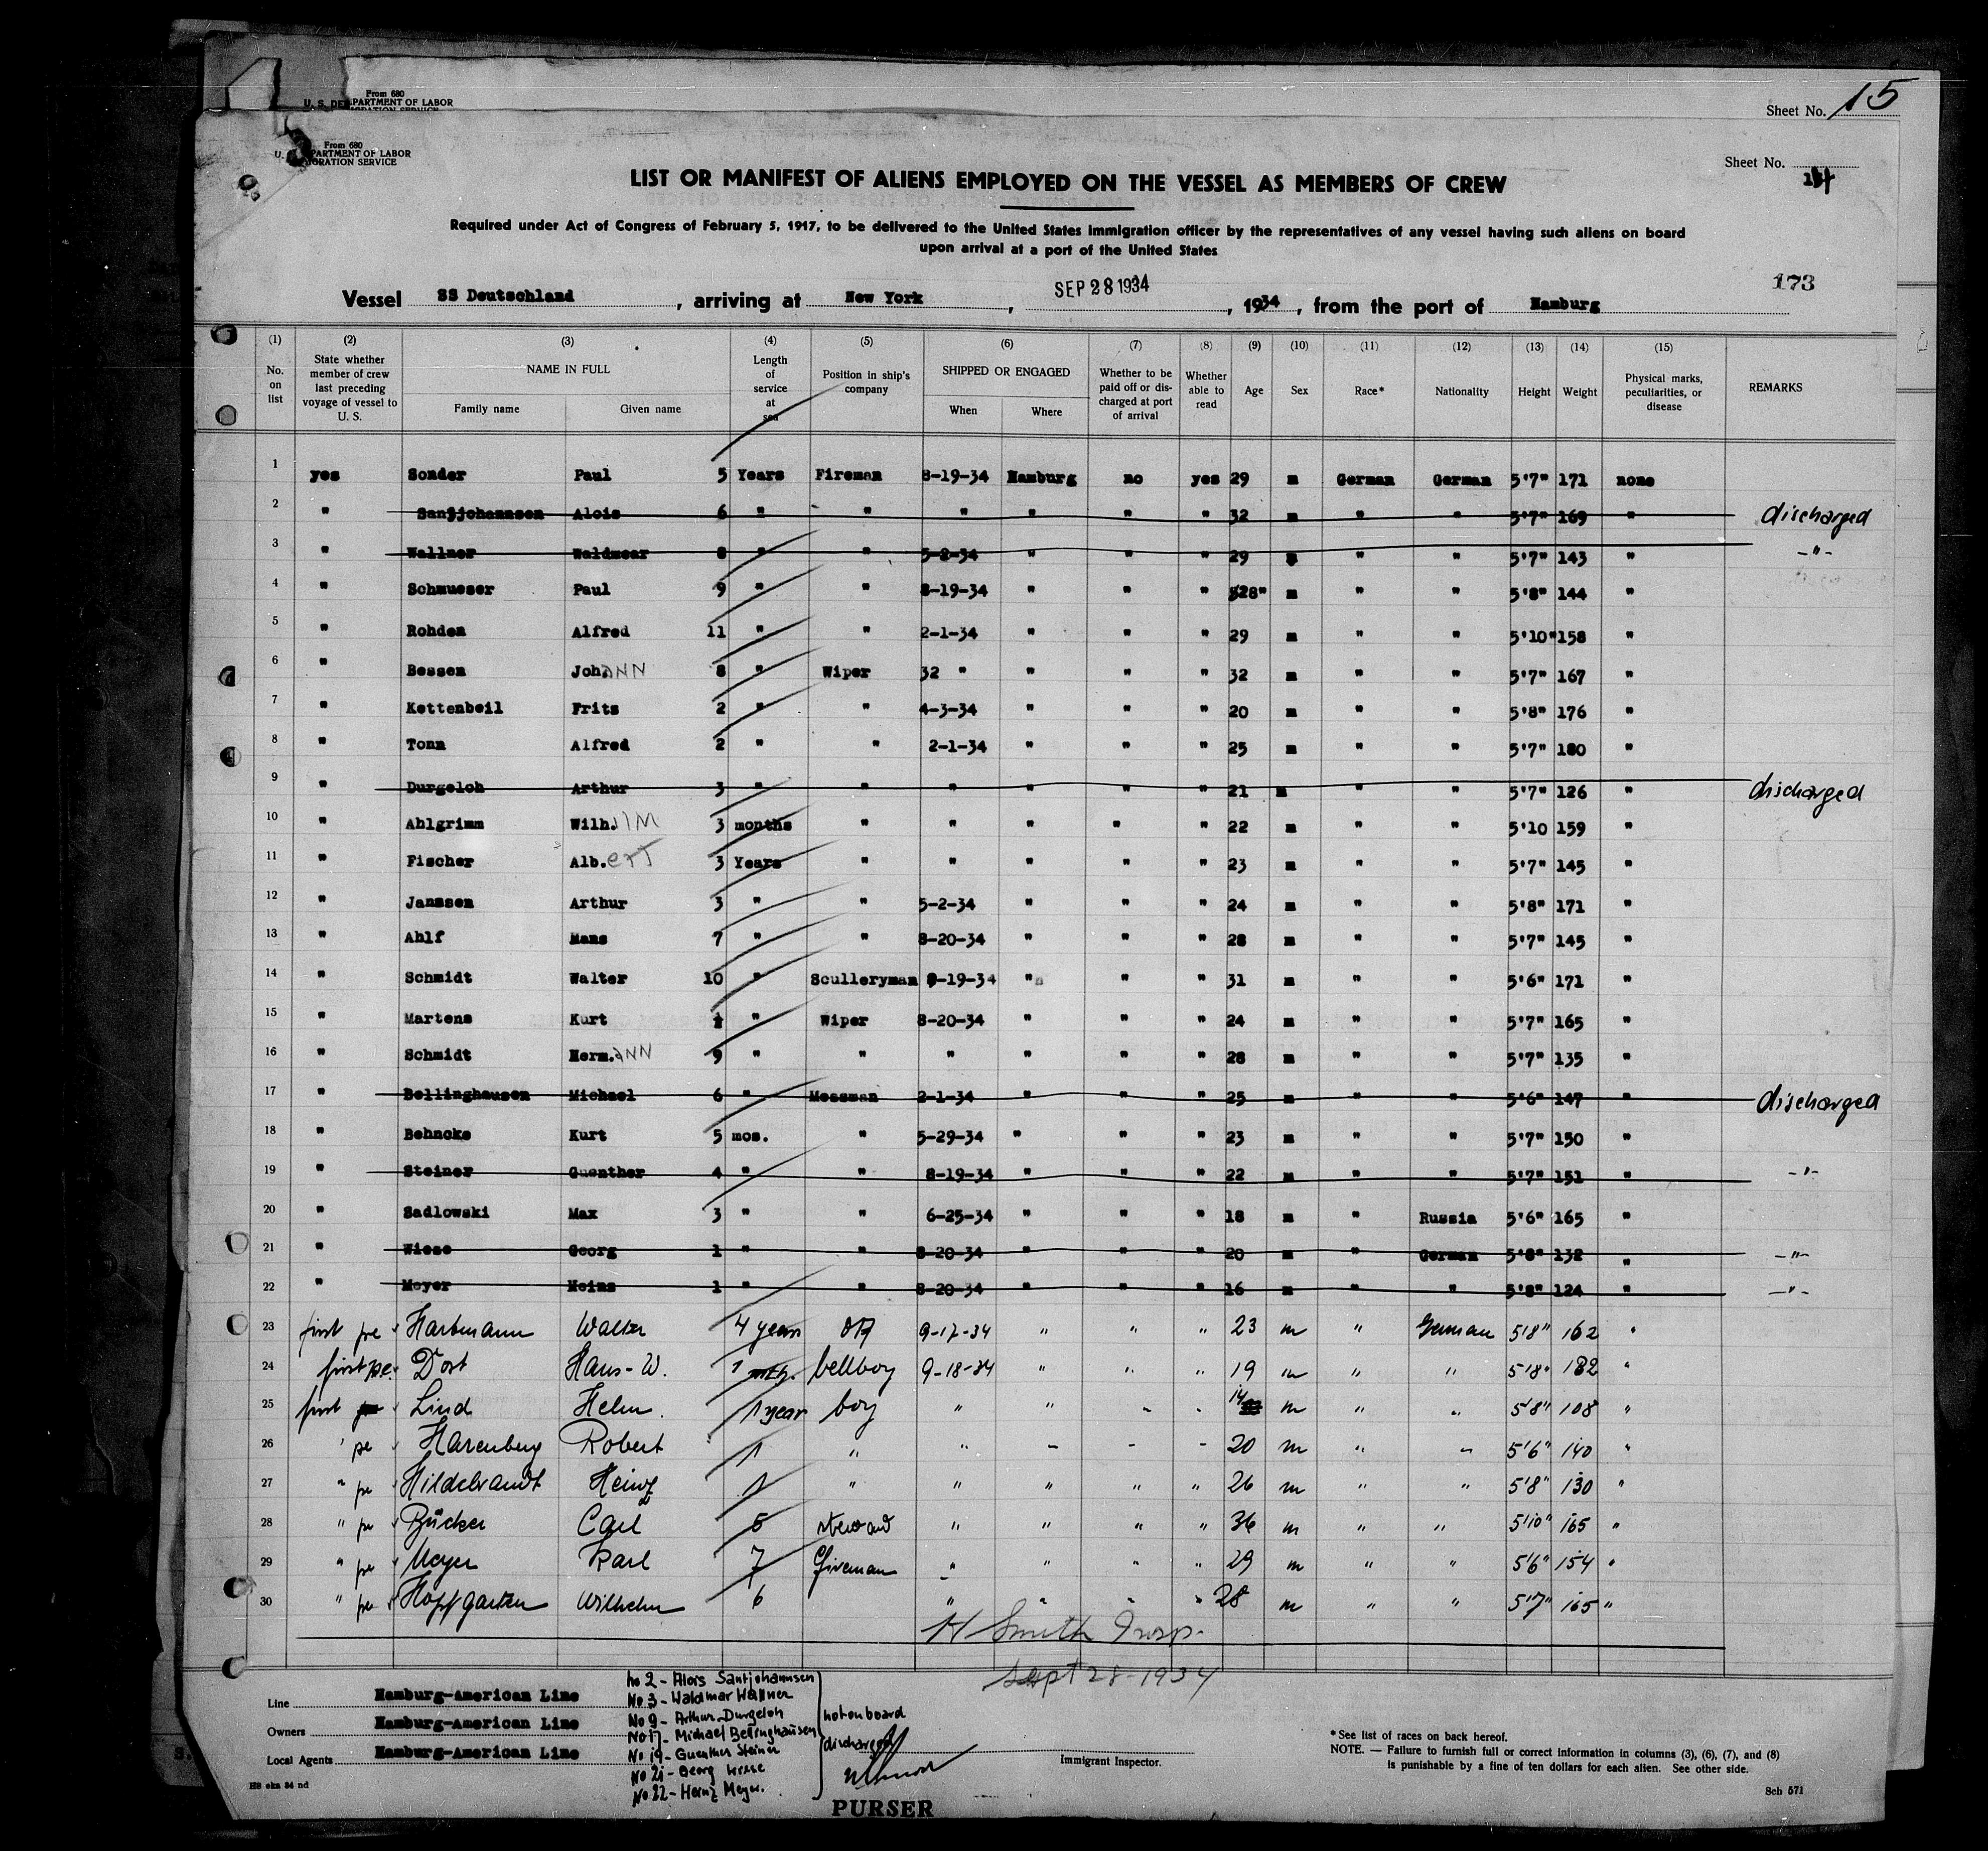 From 680
U. S. DEPARTMENT OF LABOR
Sheet No. 15
From 680
U. PARTMENT OF LABOR
GRATION SERVICE
Sheet No.
LIST OR MANIFEST OF ALIENS EMPLOYED ON THE VESSEL AS MEMBERS OF CREW
Required under Act of Congress of February 5, 1917, to be delivered to the United States immigration officer by the representatives of any vessel having such aliens on board
upon arrival at a port of the United States
173
Vessel SS Deutschland , arriving at New York , SEP 28 1934 , 1934 , from the port of Hamburg
(1) No. on list (2) State whether member of crew last preceding voyage of vessel to U. S. (3) NAME IN FULL Family name Given name (4) Length of service at sea (5) Position in ship's company (6) SHIPPED OR ENGAGED When Where (7) Whether to be paid off or discharged at port of arrival (8) Whether able to read (9) Age (10) Sex (11) Race* (12) Nationality (13) Height (14) Weight (15) Physical marks, peculiarities, or disease REMARKS
1 yes Sonder Paul 5 Years Fireman 8-19-34 Hamburg no yes 29 m German German 5'7" 171 none
2 " Santjohannsen Alois 6 " " " " " " 32 m " " 5'7" 169 " discharged
3 " Wallner Waldmear 8 " " 5-2-34 " " " 29 m " " 5'7" 143 " -"-
4 " Schmueser Paul 9 " " 8-19-34 " " " 28" m " " 5'8" 144 "
5 " Rohden Alfred 11 " " 2-1-34 " " " 29 m " " 5'10" 158 "
6 " Bessen Johann 8 " Wiper 32 " " " " 32 m " " 5'7" 167 "
7 " Kettenbeil Fritz 2 " " 4-3-34 " " " 20 m " " 5'8" 176 "
8 " Tonn Alfred 2 " " 2-1-34 " " " 25 m " " 5'7" 180 "
9 " Durgeloh Arthur 3 " " " " " " 21 m " " 5'7" 126 " discharged
10 " Ahlgrimm Wilh. 3 months " " " " " 22 m " " 5'10 159 "
11 " Fischer Alb.ert 3 Years " " " " " 23 m " " 5'7" 145 "
12 " Janssen Arthur 3 " " 5-2-34 " " " 24 m " " 5'8" 171 "
13 " Ahlf Hans 7 " " 8-20-34 " " " 28 m " " 5'7" 145 "
14 " Schmidt Walter 10 " Sculleryman 8-19-34 " " " 31 m " " 5'6" 171 "
15 " Martens Kurt " Wiper 8-20-34 " " " 24 m " " 5'7" 165 "
16 " Schmidt Herm.ann 9 " " " " " " 28 m " " 5'7" 135 "
17 " Bellinghausen Michael 6 " Messman 2-1-34 " " " 25 m " " 5'6" 147 " discharged
18 " Behncke Kurt 5 mos. " 5-29-34 " " " 23 m " " 5'7" 150 "
19 " Steiner Guenther 4 " " 8-19-34 " " " 22 m " " 5'7" 151 " -"-
20 " Sadlowski Max 3 " " 6-25-34 " " " 18 m " Russia 5'6" 165 "
21 " Wiese Georg 1 " " 8-20-34 " " " 20 m " German 5'8" 132 " -"-
22 " Meyer Heinz 1 " " 8-20-34 " " " 16 m " " 5'8" 124 " -"-
23 first pe Hartmann Walter 4 years 9-17-34 " " " 23 m " German 5'8" 162 "
24 first pe. Dost Hans-W. 1 mth. bellboy 9-18-34 " " " 19 m " " 5'8" 182 "
25 first Lind Helm. 1 year boy " " " " 14 m " " 5'8" 108 "
26 " pe Harenberg Robert 1 " " " " " 20 m " " 5'6" 140 "
27 " pe Hildebrandt Heinz 1 " " " " " 26 m " " 5'8" 130 "
28 " pe Bücker Carl 5 steward " " " " 36 m " " 5'10" 165 "
29 " pe Meyer Karl 7 Fireman " " " " 29 m " " 5'6" 154 "
30 " pe Hopfgarten Wilhelm 6 " " " " 28 m " " 5'7" 165 "
H Smith Insp.
Sept 28-1934
Line Hamburg-American Line
Owners Hamburg-American Line
Local Agents Hamburg-American Line
HS eka 34 nd
No 2 - Alois Santjohannsen
No 3 - Waldmar Wallner
No 9 - Arthur Durgeloh
No 17 - Michael Bellinghausen
No 19 - Guenther Steiner
No 21 - Georg Wiese
No 22 - Heinz Meyer.
not on board
discharged
PURSER
Immigrant Inspector.
* See list of races on back hereof.
NOTE. — Failure to furnish full or correct information in columns (3), (6), (7), and (8)
is punishable by a fine of ten dollars for each alien. See other side.
Sch 571